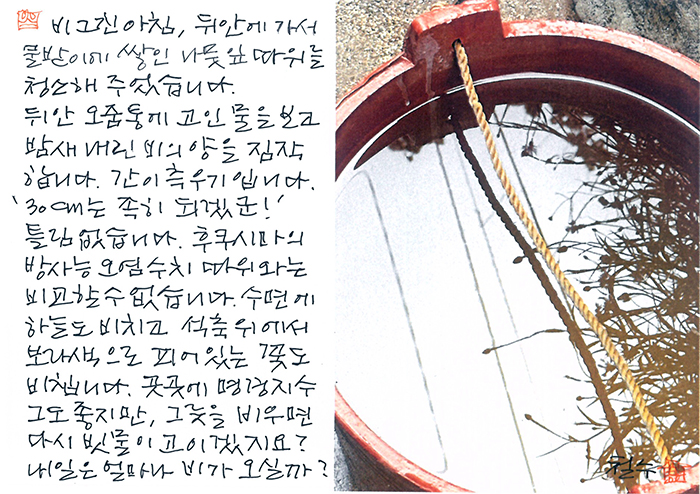 비 그친 아침, 뒤안에 가서
물받이에 쌓인 나뭇잎 따위를
청소해 주었습니다.
뒤안 오줌통에 고인 물을 보고
밤새 내린 비의 양을 짐작
합니다. 간이 측우기입니다.
'30cm는 족히 되겠군!'
틀림없습니다. 후쿠시마의
방사능 오염수치 따위와는
비교할 수 없습니다. 수면에
하늘도 비치고 석축 위에서
보라색으로 피어있는 꽃도
비칩니다. 곳곳에 명경지수
그도 좋지만, 그릇을 비우면
다시 빗물이 고이겠지요?
내일은 얼마나 비가 오실까?
철수